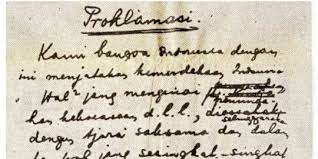 Proklamasi.
Kami bangsa Indonesia dengan
ini menjatakan kemerdekaan Indonesia
Hal² jang mengenai
d.l.l.,
dengan tjara saksama dan dalam
jang sesingkat-singkat